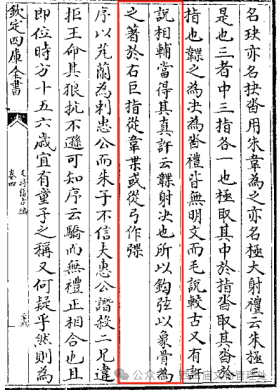 名玦亦名抉沓用朱韋為之亦名極大射禮云朱極三
是也三者中三指各一也極取其中於指沓取其沓於
指也韘之為決為沓禮皆無明文而毛說較古又有許
說相輔當得其真許云韘射決也所以鉤弦以象骨為
之著於右巨指從韋枼或從弓作弽
序以芄蘭為刺惠公而朱子不信夫惠公譖殺二兄違
拒王命其狠抗不遜可知序云驕而無禮正相合也且
即位時方十五六歲宜有童子之稱又何疑乎然則為
欽定四庫全書
毛詩稽古編
卷四
公众号